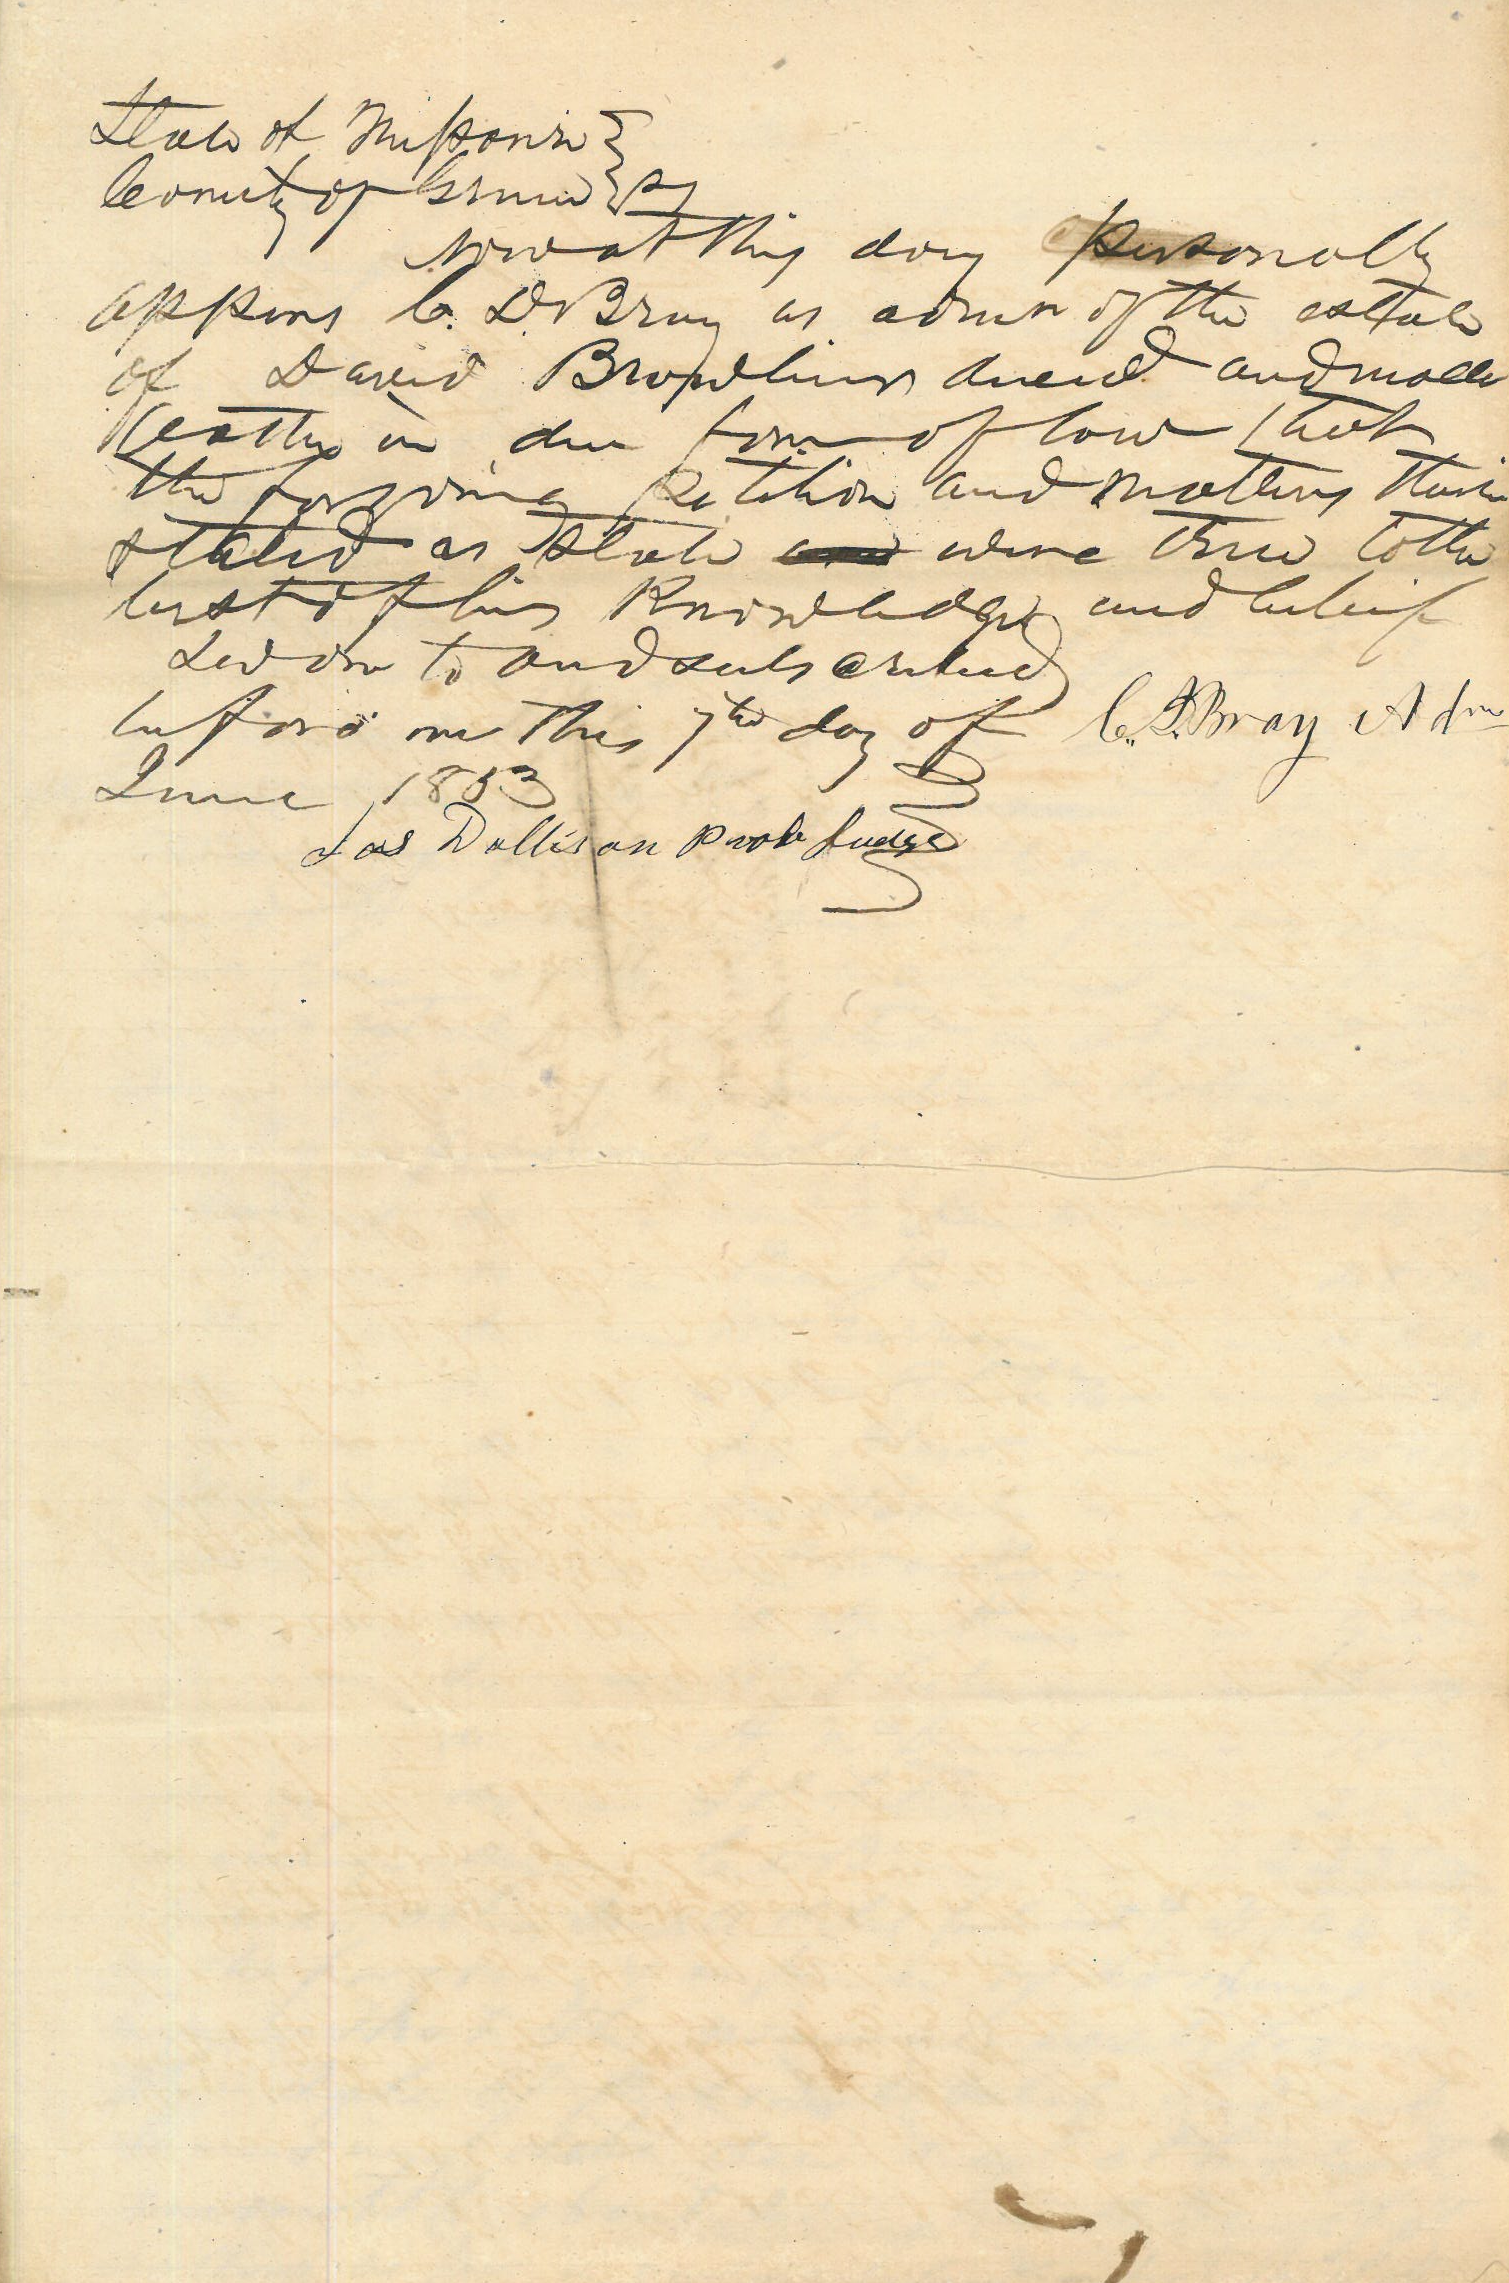 State of Missouri }
County of Greene } ss
Now at this day personally
appears C. D. Bray as admr of the estate
of David deced and make
oath in due form of law that
the forgoing petition and matters therein
stated as state were true to the
best of his Knowledge and beleif
Sworn to and subscribed
before me this 7th day of C. D. Bray Adm
June 1853
Jas Dollison Prob Judge